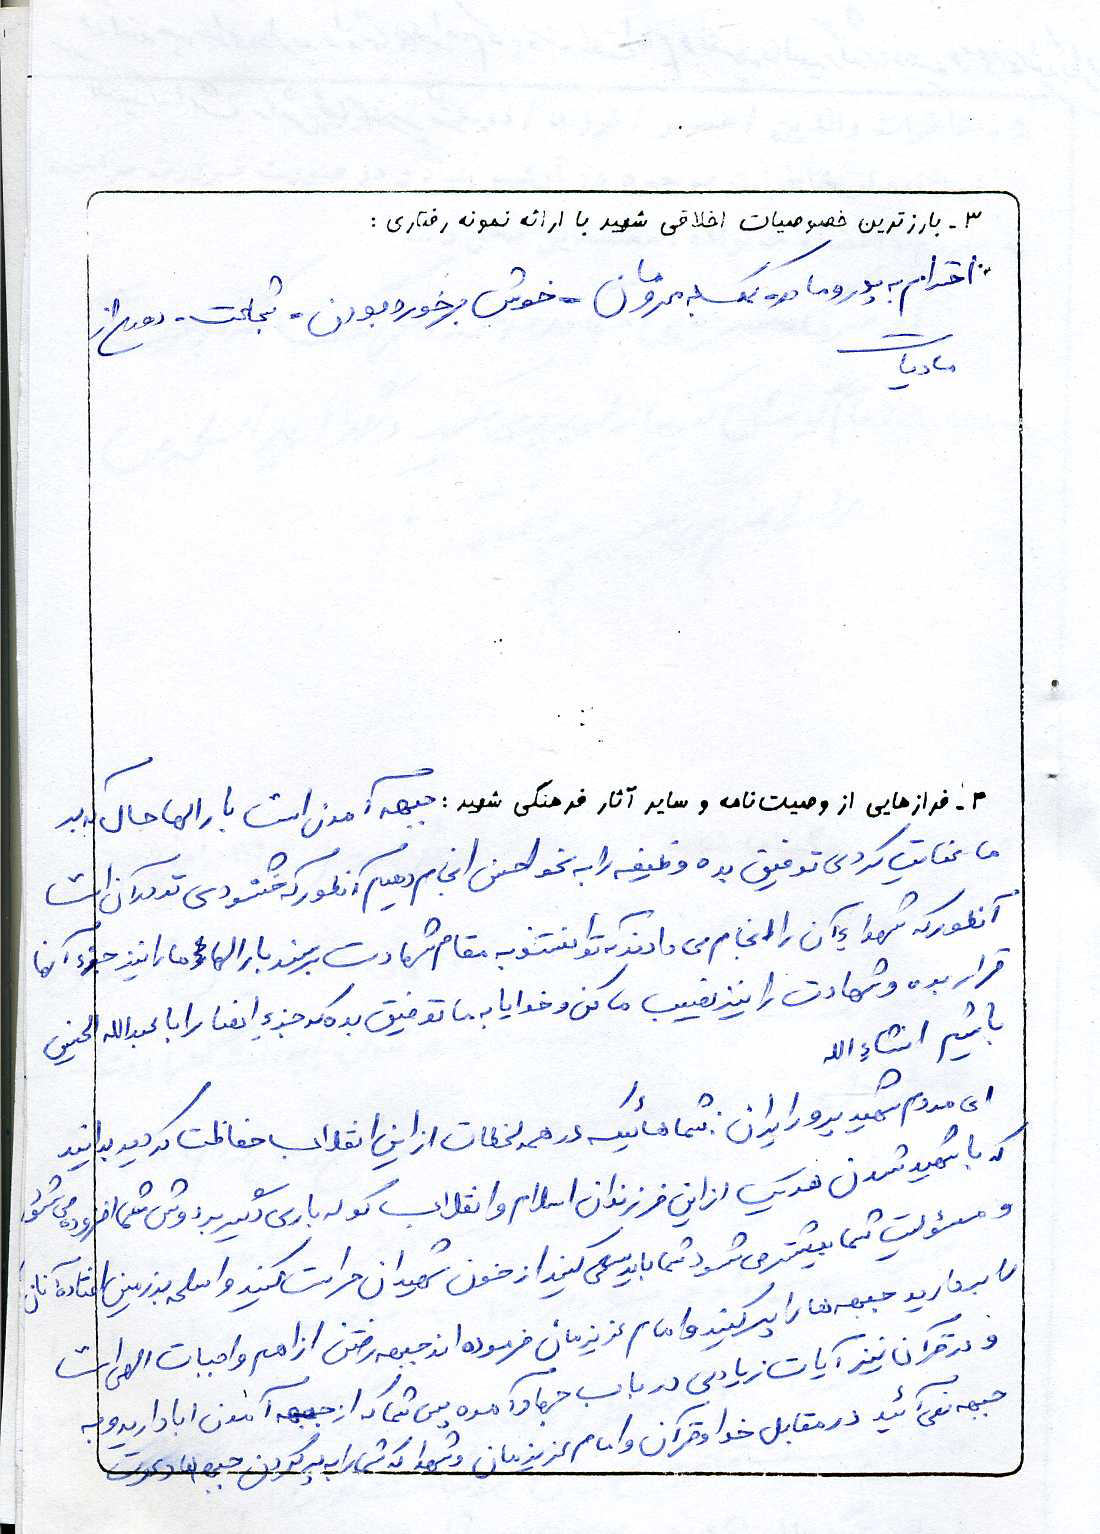 ۳ - بارزترین خصوصیات اخلاقی شهید با ارائه نمونه رفتاری :
احترام به پدر و مادر - کمک به محرومان - خوش برخورد بودن - شجاعت -
مادیات
۴ - فرازهایی از وصیت‌نامه و سایر آثار فرهنگی شهید : جبهه آمدن است بارالها حال که بر
ما عنایت کردی توفیق بده وظیفه را به نحو احسن انجام دهیم آنطور که خشنودی تو در آن است
آنطور که شهداء آن را انجام می دادند که توانستند به مقام شهادت برسند بارالها ما را نیز جزء آنها
قرار بده و شهادت را نیز نصیب ما کن و خدایا به ما توفیق بده که جزء انصار اباعبدالله الحسین
باشیم انشاءالله
ای مردم شهید پرور ایران : شماهائیکه در همه لحظات از این انقلاب حفاظت کردید بدانید
که با شهید شدن هر یک از این فرزندان اسلام و انقلاب کوله باری دیگر بر دوش شما افزوده می شود
و مسئولیت شما بیشتر می شود شما باید سعی کنید از خون شهیدان حراست کنید و اسلحه بر زمین افتاده آنان
را بردارید جبهه ها را پر کنید و امام عزیزمان فرموده اند جبهه رفتن از اهم واجبات الهی است
و در قرآن نیز آیات زیادی در باب جهاد آمده پس شما که از جبهه آمدن ابا دارید و به
جبهه نمی آئید در مقابل خدا و قرآن و امام عزیزمان و شهدا که شما را به پر کردن جبهه ها دعوت